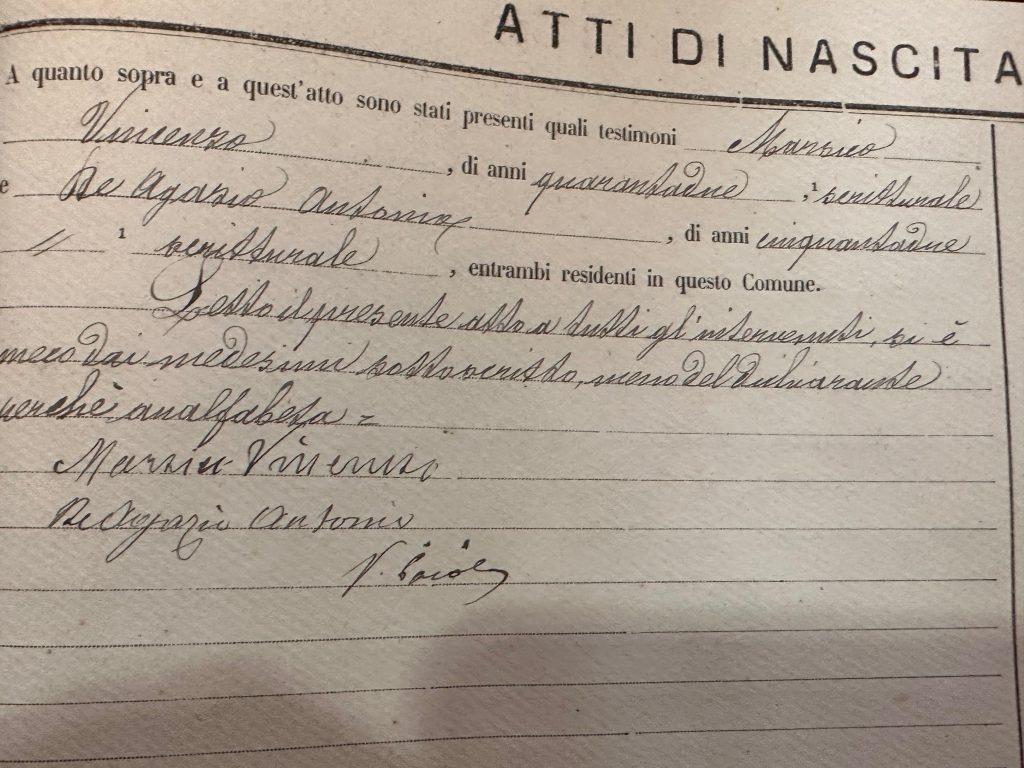 ATTI DI NASCITA
A quanto sopra e a quest'atto sono stati presenti quali testimoni Marsico
Vincenzo, di anni quarantadue, ¹ scritturale
e De Agazio Antonio, di anni cinquantadue
〃 ¹ scritturale, entrambi residenti in questo Comune.
Letto il presente atto a tutti gl'intervenuti, si è
meco dai medesimi sottoscritto, meno del dichiarante
perchè analfabeta =
Marsico Vincenzo
De Agazio Antonio